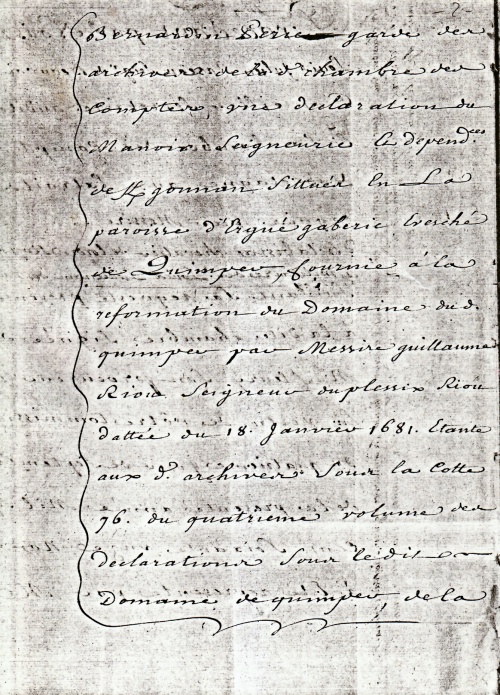 - 2 -
Bernardin Verrie garde des
archives de la d. chambre des
Comptes, une declaration du
Manoir Seigneurie & depend.ces
de Kgonnan Sittués En La
paroisse d'Ergué gaberic Evesché
de Quimper, fournie à la
reformation du Domaine du d.
quimper par Messire guillaume
Riou Seigneur du plessix Riou
dattée du 18. Janvier 1681. Etante
aux d. archives Sous la Cotte
76. du quatrieme volume des
declarations Sous le dit
Domaine de quimper de la